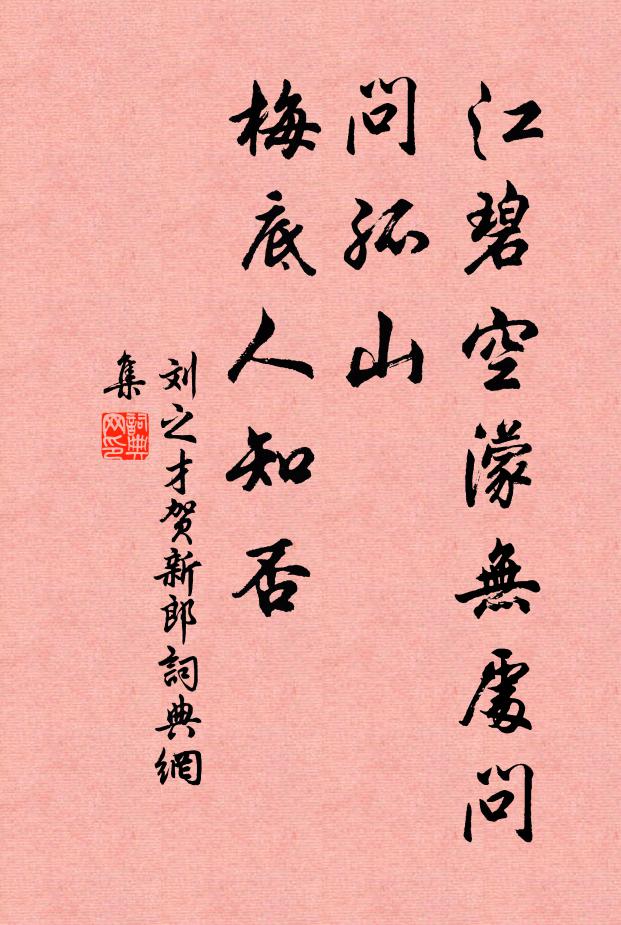 江碧空濛無處問
問孤山
梅底人知否
刘之才贺新郎詞典網
集
詞典网印